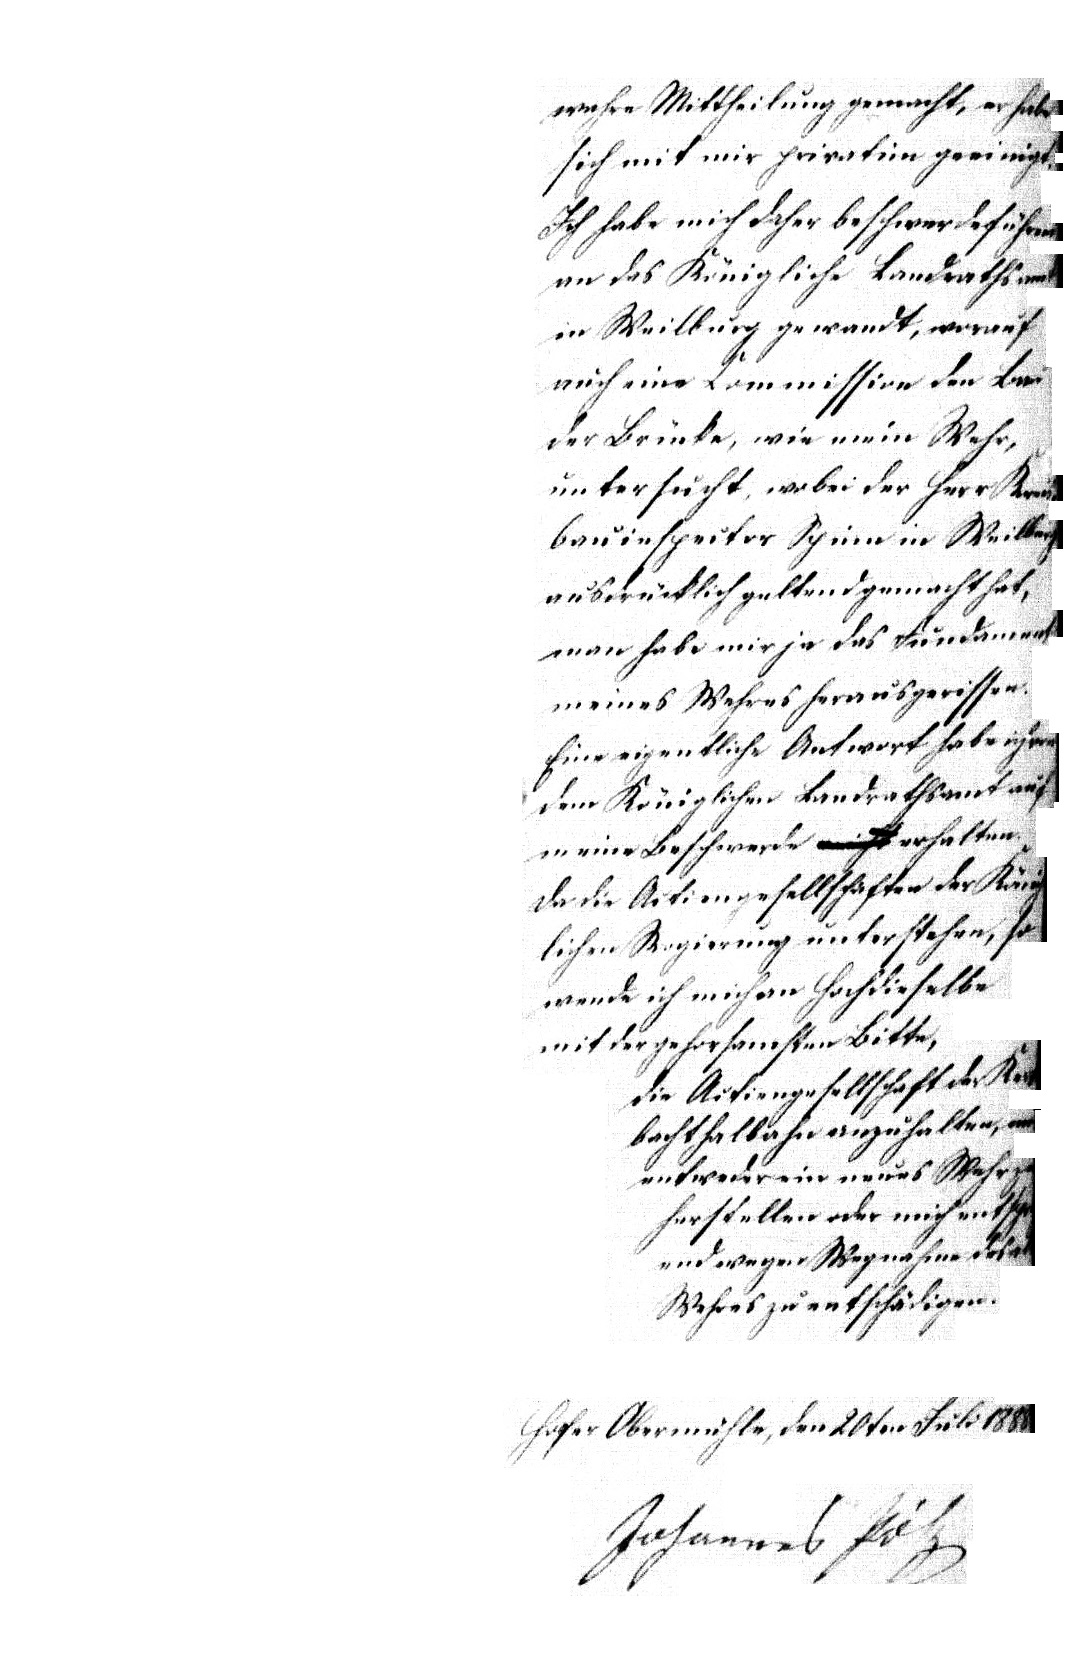 wahre Mittheilung gemacht, er habe
sich mit mir privatim geeinigt.
Ich habe mich daher beschwerdeführen
an das Königliche Landrathsamt
in Weilburg gewandt, worauf
auch eine Commission den Bau
der Brücke, wie mein Wehr,
untersucht, wobei der Herr Kreis
bauinspector Spinn in Weilburg
ausdrücklich geltend gemacht hat,
man habe mir ja das Fundament
meines Wehres herausgerissen.
Eine eigentliche Antwort habe ich von
dem Königlichen Landrathsamt auf
meine Beschwerde erhalten.
Da die Actiengesellschaften der König
lichen Regierung unterstehen, so
wende ich mich an Hochdieselbe
mit der gehorsamsten Bitte,
die Actiengesellschaft der Ker
bachthalbahn anzuhalten, mir
entweder ein neues Wehr zu
herstellen oder mich entspr
end wegen Wegnahme des al
Wehres zu entschädigen.
Hofer Obermühle, den 20ten Juli 1888
Johannes